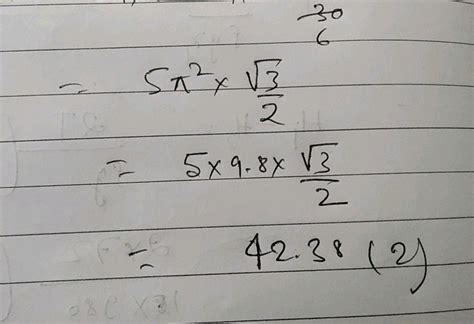 30
6
= 5π² × √3/2
= 5×9.8× √3/2
= 42.38 (2)